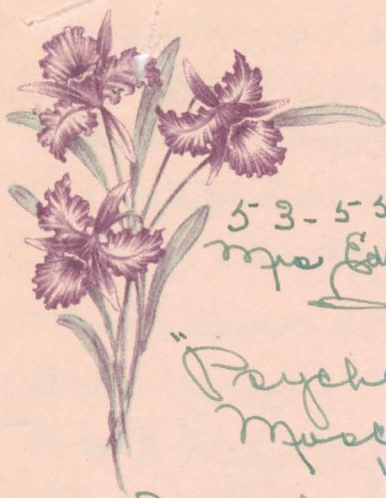 53-55
Mrs Ed
"Psyche
Musc